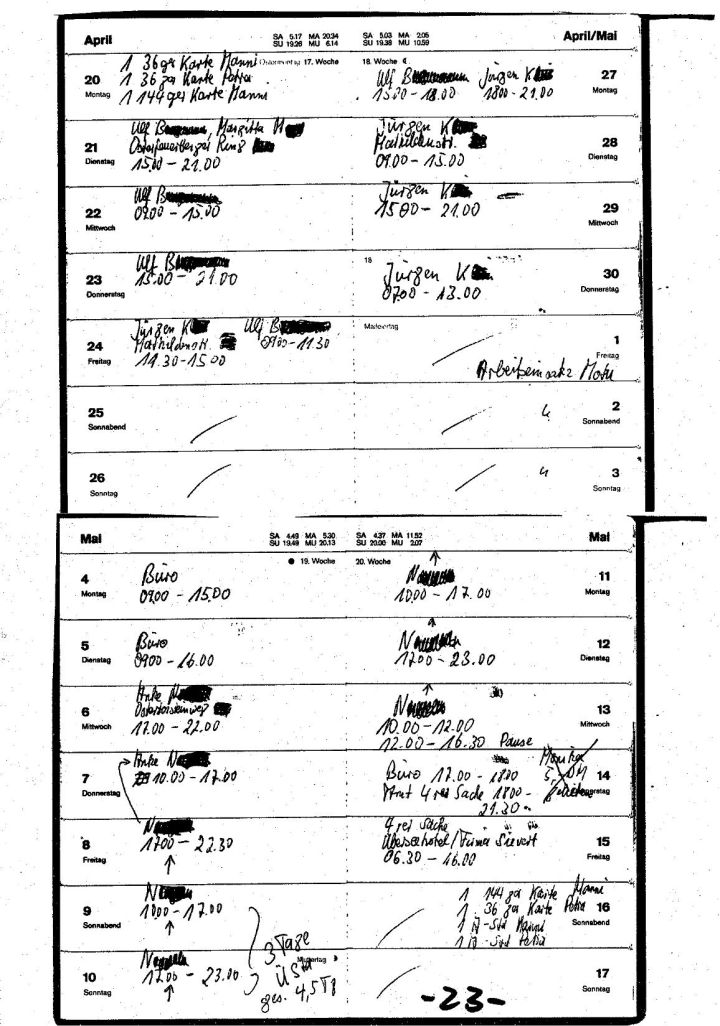 April
SA 5.17 MA 20.34
SU 19.26 MU 6.14
SA 5.03 MA 2.05
SU 19.38 MU 10.59
April/Mai
20
Montag
1 36ger Karte Manni
1 36 ger Karte Petra
1 144 ger Karte Manni
Ostermontag 17. Woche
18. Woche
Ulf B
15.00 - 18.00
Jürgen K
1800 - 21.00
27
Montag
21
Dienstag
Ulf B Margitta M
Ring
15.00 - 21.00
Jürgen K
Mathildenstr.
09.00 - 15.00
28
Dienstag
22
Mittwoch
Ulf B
09.00 - 15.00
Jürgen K
15 00 - 21.00
29
Mittwoch
23
Donnerstag
Ulf B
15.00 - 21.00
Jürgen K
0700 - 13.00
30
Donnerstag
24
Freitag
Jürgen K
Mathildenstr.
11.30 - 15.00
Ulf B
0900 - 11.30
Maifeiertag
1
Freitag
Arbeitseinsatz
25
Sonnabend
2
Sonnabend
26
Sonntag
3
Sonntag
Mai
SA 4.49 MA 5.30
SU 19.49 MU 20.13
SA 4.37 MA 11.52
SU 20.00 MU 2.07
Mai
4
Montag
19. Woche
20. Woche
Büro
09.00 - 15.00
N
10.00 - 17.00
11
Montag
5
Dienstag
Büro
0900 - 16.00
N
1700 - 23.00
12
Dienstag
6
Mittwoch
Anke M
17.00 - 22.00
N
10.00 - 12.00
12.00 - 16.30 Pause
13
Mittwoch
7
Donnerstag
Anke N
10.00 - 17.00
Büro 17.00 - 1800
4 rei Sache 1800 -
21.30
Monika
5,- DM
14
8
Freitag
N
1700 - 22.30
4 rei Sache
Überseehotel/Firma Sievert
06.30 - 16.00
15
Freitag
9
Sonnabend
N
1000 - 17.00
1 144 ger Karte Manni
1 36 ger Karte Petra
1 Manni
1 Petra
16
Sonnabend
10
Sonntag
N
17.00 - 23.00
3 Tage
ÜStd
ges. 4,5 Tg
Muttertag
17
Sonntag
-23-